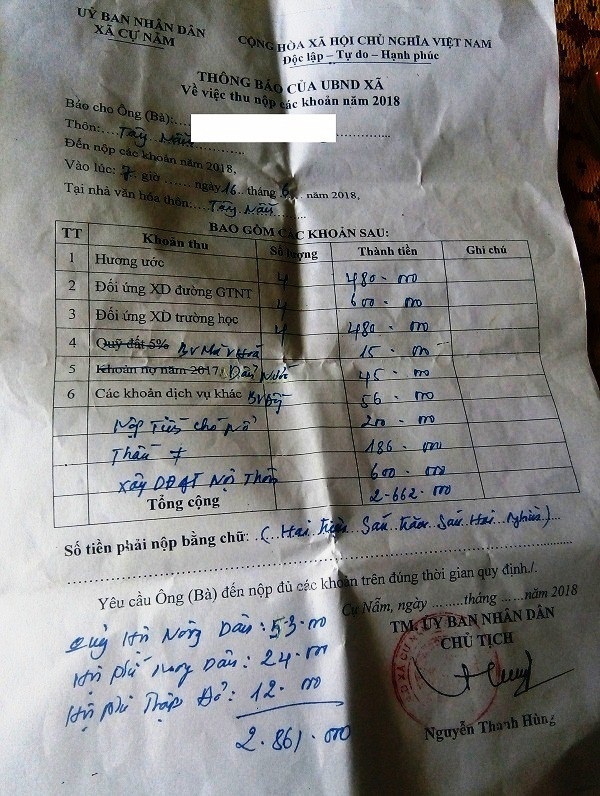 UỶ BAN NHÂN DÂN
XÃ CỰ NẪM
CỘNG HÒA XÃ HỘI CHỦ NGHĨA VIỆT NAM
Độc lập – Tự do – Hạnh phúc
THÔNG BÁO CỦA UBND XÃ
Về việc thu nộp các khoản năm 2018
Báo cho Ông (Bà):
Thôn: Tây Nẫm
Đến nộp các khoản năm 2018,
Vào lúc: 7 giờ ...... ngày 16 tháng 6 năm 2018,
Tại nhà văn hóa thôn: Tây Nẫm
BAO GỒM CÁC KHOẢN SAU:
TT Khoản thu Số lượng Thành tiền Ghi chú
1 Hương ước 4 480.000
2 Đối ứng XD đường GTNT 4 600.000
3 Đối ứng XD trường học 4 480.000
4 Quỹ đất 5% 15.000
5 Khoản nợ năm 2017 45.000
6 Các khoản dịch vụ khác 56.000
Nộp Tiền 200.000
186.000
Xây Nội Thôn 600.000
Tổng cộng 2.662.000
Số tiền phải nộp bằng chữ: (Hai Triệu Sáu Trăm Sáu Hai Nghìn)
Yêu cầu Ông (Bà) đến nộp đủ các khoản trên đúng thời gian quy định./.
Cự Nẫm, ngày ........tháng ......năm 2018
TM. ỦY BAN NHÂN DÂN
CHỦ TỊCH
Quỹ Hội Nông Dân: 53.000
Hội phí Nông Dân: 24.000
Hội phí Thập Đỏ: 12.000
2.861.000
Nguyễn Thanh Hùng